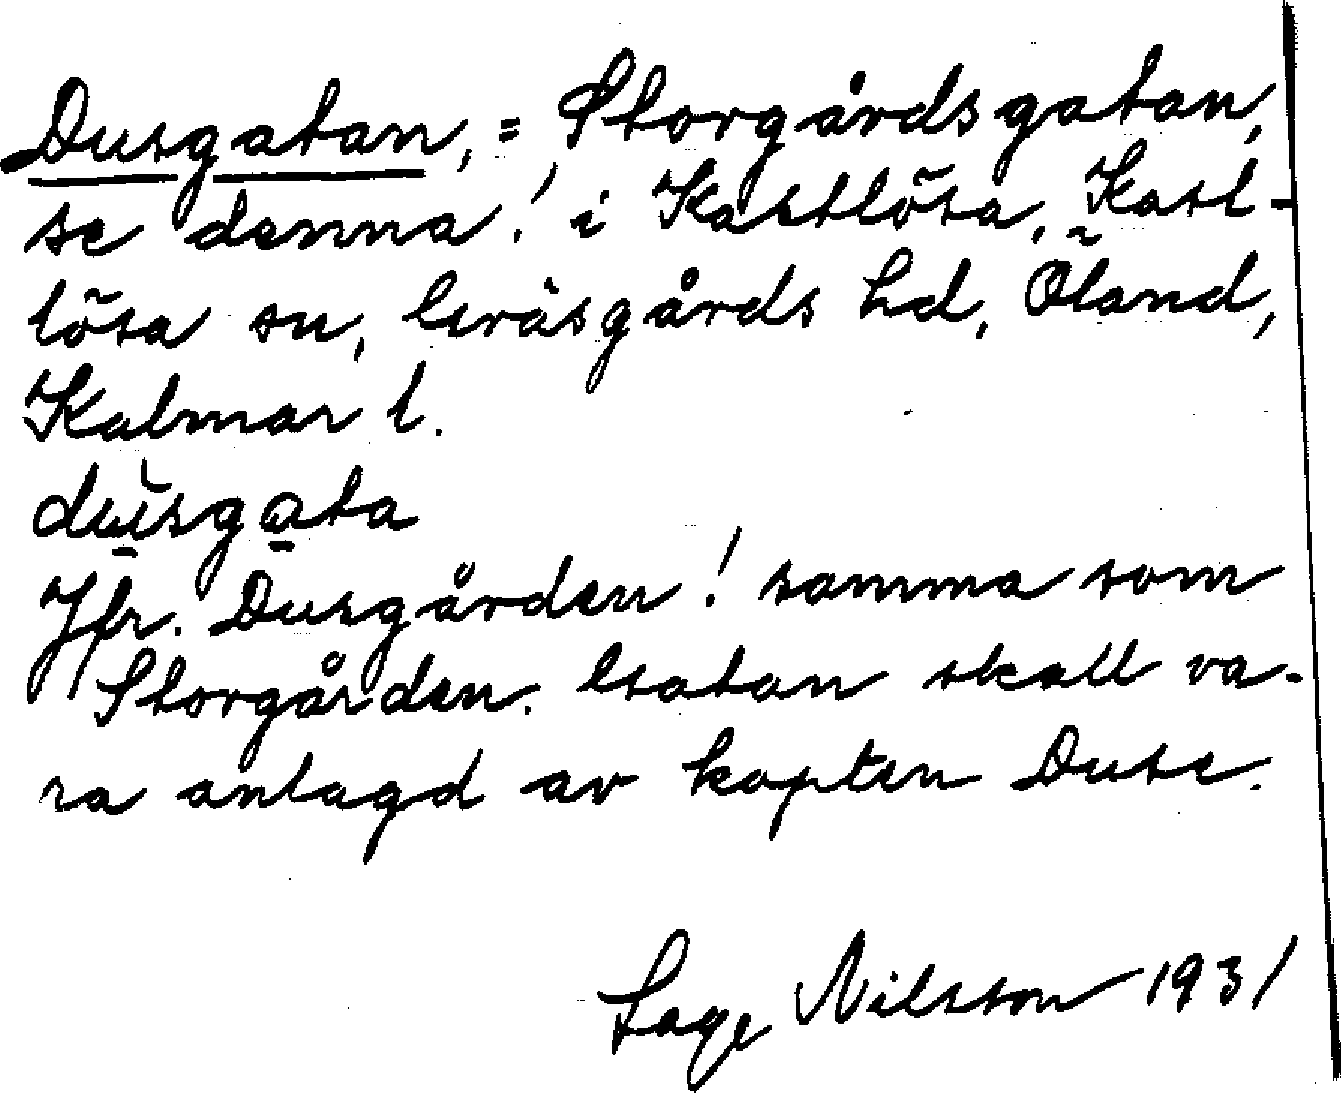 Dusgatan, = Storgårdsgatan,
se denna! i Kastlösa, Kast-
lösa sn, Gräsgårds hd, Öland,
Kalmar l.
dusgata
Jfr. Dusgården! samma som
Storgården. Gatan skall va-
ra anlagd av kapten Duse.
Sage Nilsson 1931